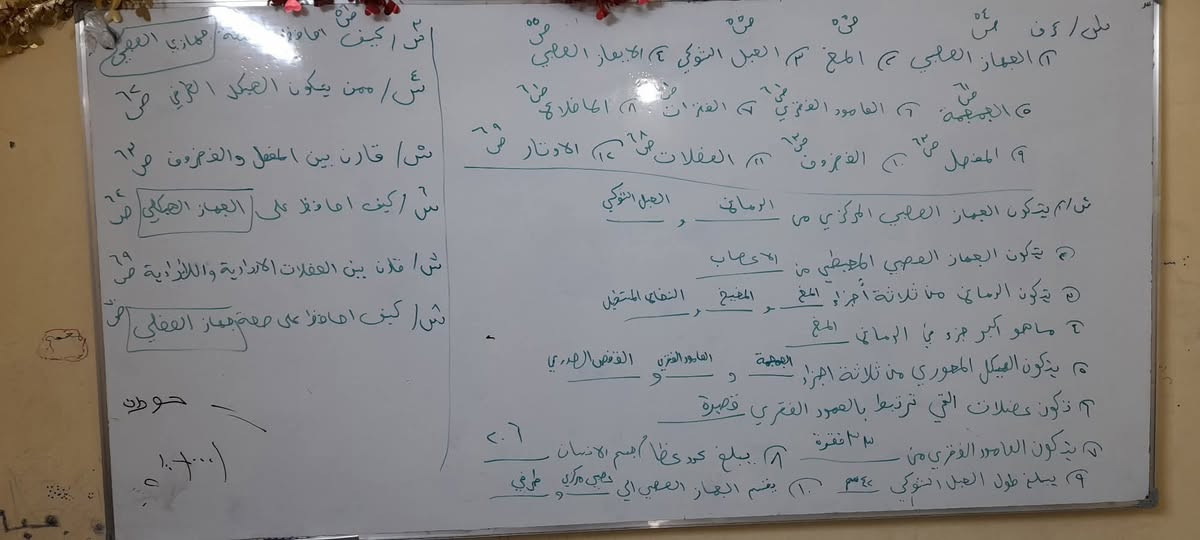 س١/ عرف
١) الجهاز العصبي ص٥٤ ٢) المخ ص٥٥ ٣) الحبل الشوكي ص٥٥ ٤) الابهار العصبي ص٥٥
٥) الجمجمة ص٦١ ٦) العامود الفقري ص٦١ ٧) الفقرات ص٦١ ٨)
٩) المفصل ص٦٣ ١٠) الغضروف ص٦٣ ١١) العضلات ص٦٨ ١٢) الاوتار ص٦٩
س٢/ ١) يتكون الجهاز العصبي المركزي من الدماغ و الحبل الشوكي
٢) يتكون الجهاز العصبي المحيطي من الاعصاب
٣) يتكون الدماغ من ثلاثة أجزاء المخ و المخيخ و النخاع المستطيل
٤) ما هو أكبر جزء في الدماغ المخ
٥) يتكون الهيكل المحوري من ثلاثة اجزاء الجمجمة و العامود الفقري و القفص الصدري
٦) تكون عضلات التي ترتبط بالعمود الفقري قصيرة
٧) يتكون العامود الفقري من ٣٣ فقرة ٨) يبلغ عدد عظام جسم الانسان ٢٠٦
٩) يبلغ طول الحبل الشوكي ٤٢ سم ١٠) يقسم الجهاز العصبي الى عصبي مركزي و طرفي
س٣/ كيف احافظ جهازي العصبي
س٤/ ممن يتكون الهيكل الطرفي ص٦٢
س٥/ قارن بين المفصل والغضروف ص٦٣
س٦/ كيف احافظ على الجهاز الهيكلي ص٦٤
س٧/ قارن بين العضلات الارادية واللاارادية ص٦٩
س٨/ كيف احافظ على صحة جهاز العضلي